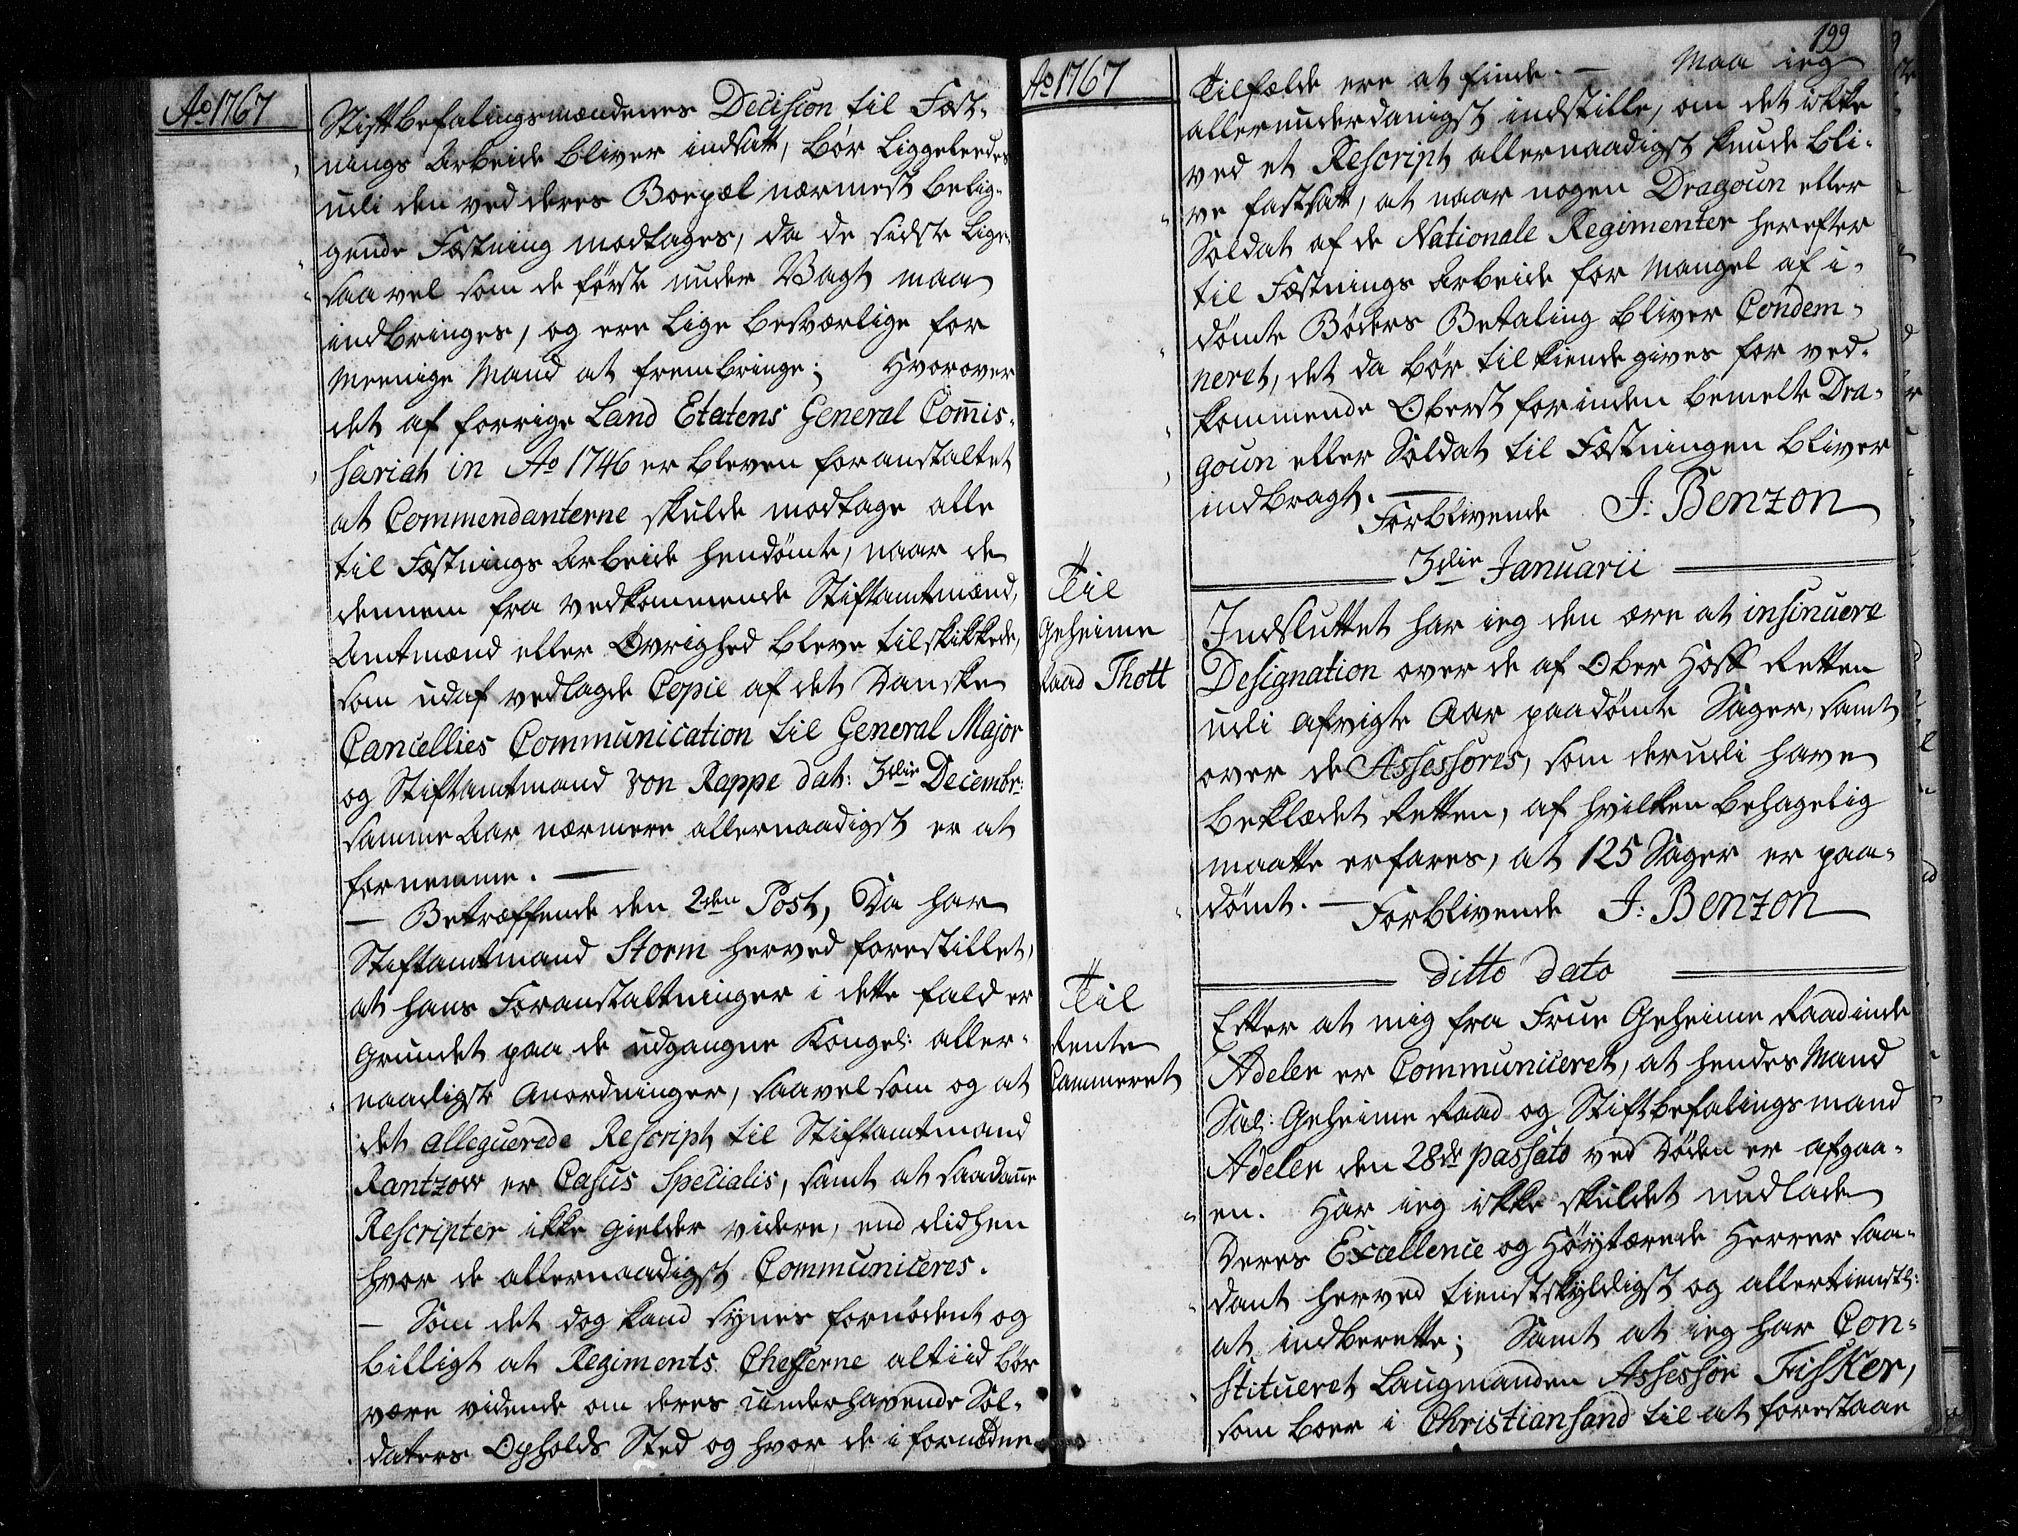 Ao 1767
Stiftbefalingsmændenes Decision til Fæst-
nings Arbeide bliver indsatt, bør liggeleedes
udi den ved deres Boepæl nærmest belig-
gende Fæstning modtages, da de sidste lige
saavel som de første under Vagt maa
indbringes, og ere lige besværlige for
Meenige Mand at frembringe; Hvorover
det af forrige Land Etatens General Commis-
sariat in Ao 1746 er bleven foranstaltet
at Commendanterne skulde modtage alle
til Fæstnings Arbeide hendømte, naar de
dennem fra vedkommende Stiftamtmænd,
Amtmænd eller Øvrighed bleve tilskikkede,
som udaf vedlagde Copie af det Danske
Cancellies Communication til General Major
og Stiftamtmand von Rappe dat: 3die Decembr:
samme Aar nærmere allernaadigst er at
fornemme. —
— Betræffende den 2den Post, Da har
Stiftamtmand Storm herved forestillet,
at hans Foranstaltninger i dette fald er
Grundet paa de udgangne Kongel: aller-
naadigste Anordninger, saavel som og at
det alleguerede Rescript til Stiftamtmand
Rantzow er Casus Specialis, samt at saadanne
Rescripter ikke gielder videre, end didhen
hvor de allernaadigst Communiceres.
— Som det dog kand synes fornødent og
billigt at Regiments Chefferne altiid bør
være vidende om deres underhavende Sol-
daters Opholds Sted og hvor de i fornødne
Ao 1767
199
Tilfælde ere at finde. — Maa ieg
allerunderdanigst indstille, om det ikke
ved et Rescript allernaadigst kunde bli-
ve fastsatt, at naar nogen Dragoun eller
Soldat af de Nationale Regimenter herefter
til Fæstnings Arbeide for Mangel af i-
dømte Bøders Betaling bliver Condem-
neret, det da bør tilkiendegives for ved-
kommende Oberst forinden bemelte Dra-
goun eller Soldat til Fæstningen bliver
indbragt. —
Forblivende J: Benzon
3die Januarii
Til
Geheime
Raad Thott
Indsluttet har ieg den ære at insinuere
Designation over de af Ober Hoff Retten
udi afvigte Aar paadømte Sager, samt
over de Assessores, som derudi have
beklædet Retten, af hvilken behagelig
maatte erfares, at 125 Sager er paa-
dømt. — Forblivende J: Benzon
ditto dato
Til
Rente
Cammeret
Efter at mig fra Frue Geheime Raadinde
Adeler er Communiceret, at hendes Mand
Sal: Geheime Raad og Stiftbefalingsmand
Adeler den 28de passato ved Døden er afgaa-
en. Har ieg ikke skuldet undlade
Deres Excellence og Høytærede Herrer saa-
dant herved tienstskyldigst og allertienstl:
at indberette; Samt at ieg har Con-
stitueret Laugmanden Assessor Fisker,
som boer i Christiansand til at forestaae